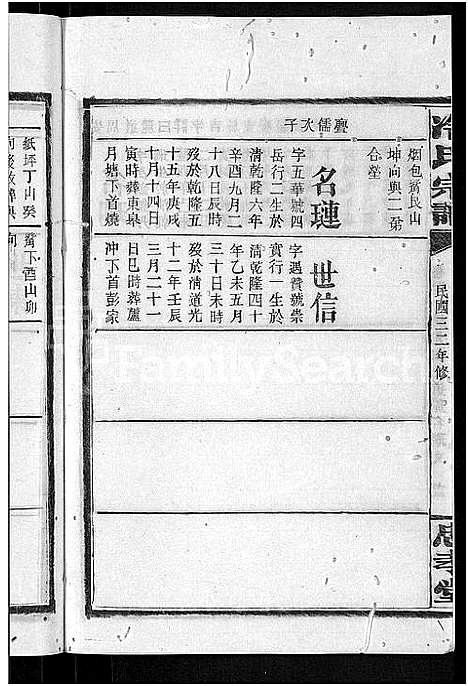 冷氏宗譜
民國三二年修
忠孝堂
烟包嘴艮山
坤向與二弟
合塋
疊儒次子
名璉
字五華號四
岳行二生於
清乾隆六年
辛酉九月二
十八日辰時
歿於乾隆五
十五年庚戌
十月十四日
寅時葬東泉
月塘下首燒
紙坪丁山癸
世信
字遇賓號崇
實行一生於
清乾隆四十
年乙未五月
三十日未時
歿於清道光
十二年壬辰
三月二十一
日巳時葬蘆
冲下首彭家
嘴下酉山卯
FamilySearch